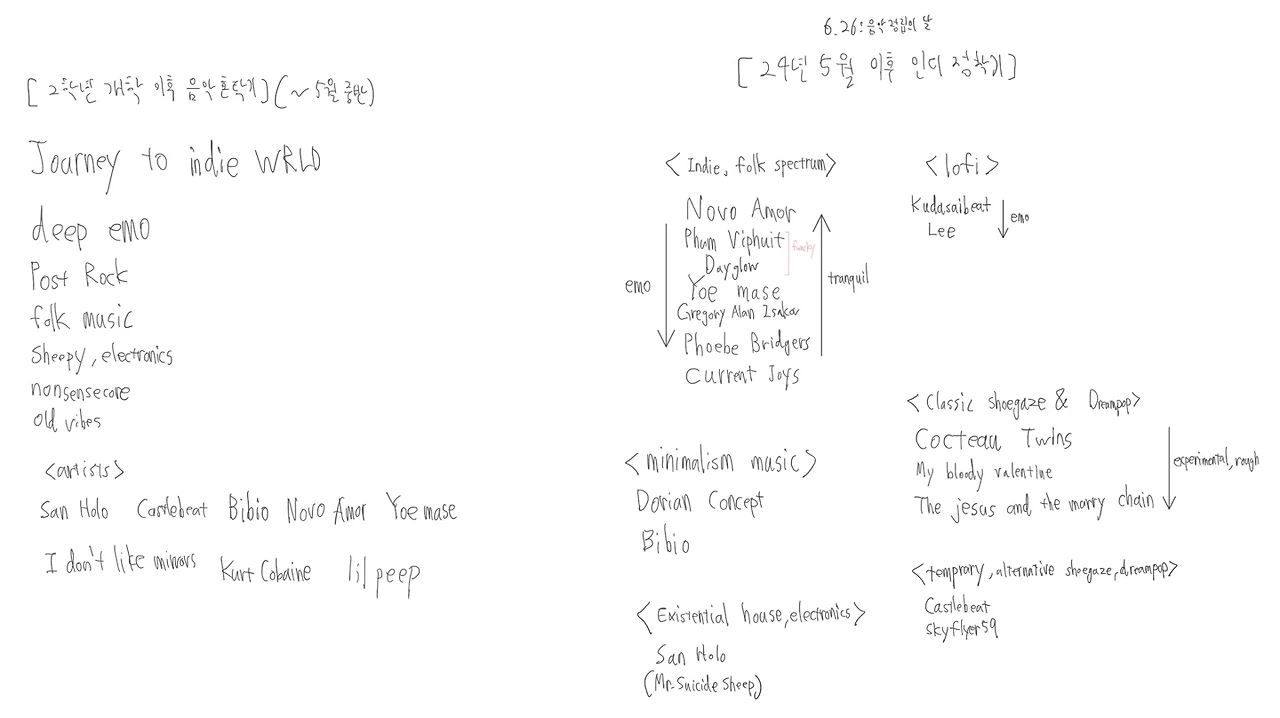 [2학년 개학 이후 음악혼탁기] (~5월 중반)
Journey to indie WRLD
deep emo
Post Rock
folk music
Sheepy, electronics
nonsensecore
old vibes
<artists>
San Holo Castlebeat Bibio Novo Amor Yoe mase
I don't like mirrors Kurt Cobaine lil peep
6.26: 음악정립의 달
[24년 5월 이후 인디 정착기]
<Indie, folk spectrum>
Novo Amor
Phum Viphuit
Dayglow
funky
Yoe mase
Gregory Alan Isakov
Phoebe Bridgers
Current Joys
emo
tranquil
<lofi>
Kudasaibeat
Lee
emo
<minimalism music>
Dorian Concept
Bibio
<Existential house, electronics>
San Holo
(Mr. Suicide Sheep)
<Classic shoegaze & Dreampop>
Cocteau Twins
My bloody valentine
The jesus and the marry chain
experimental, rough
<temprary, alternative shoegaze, dreampop>
Castlebeat
skyflyer59